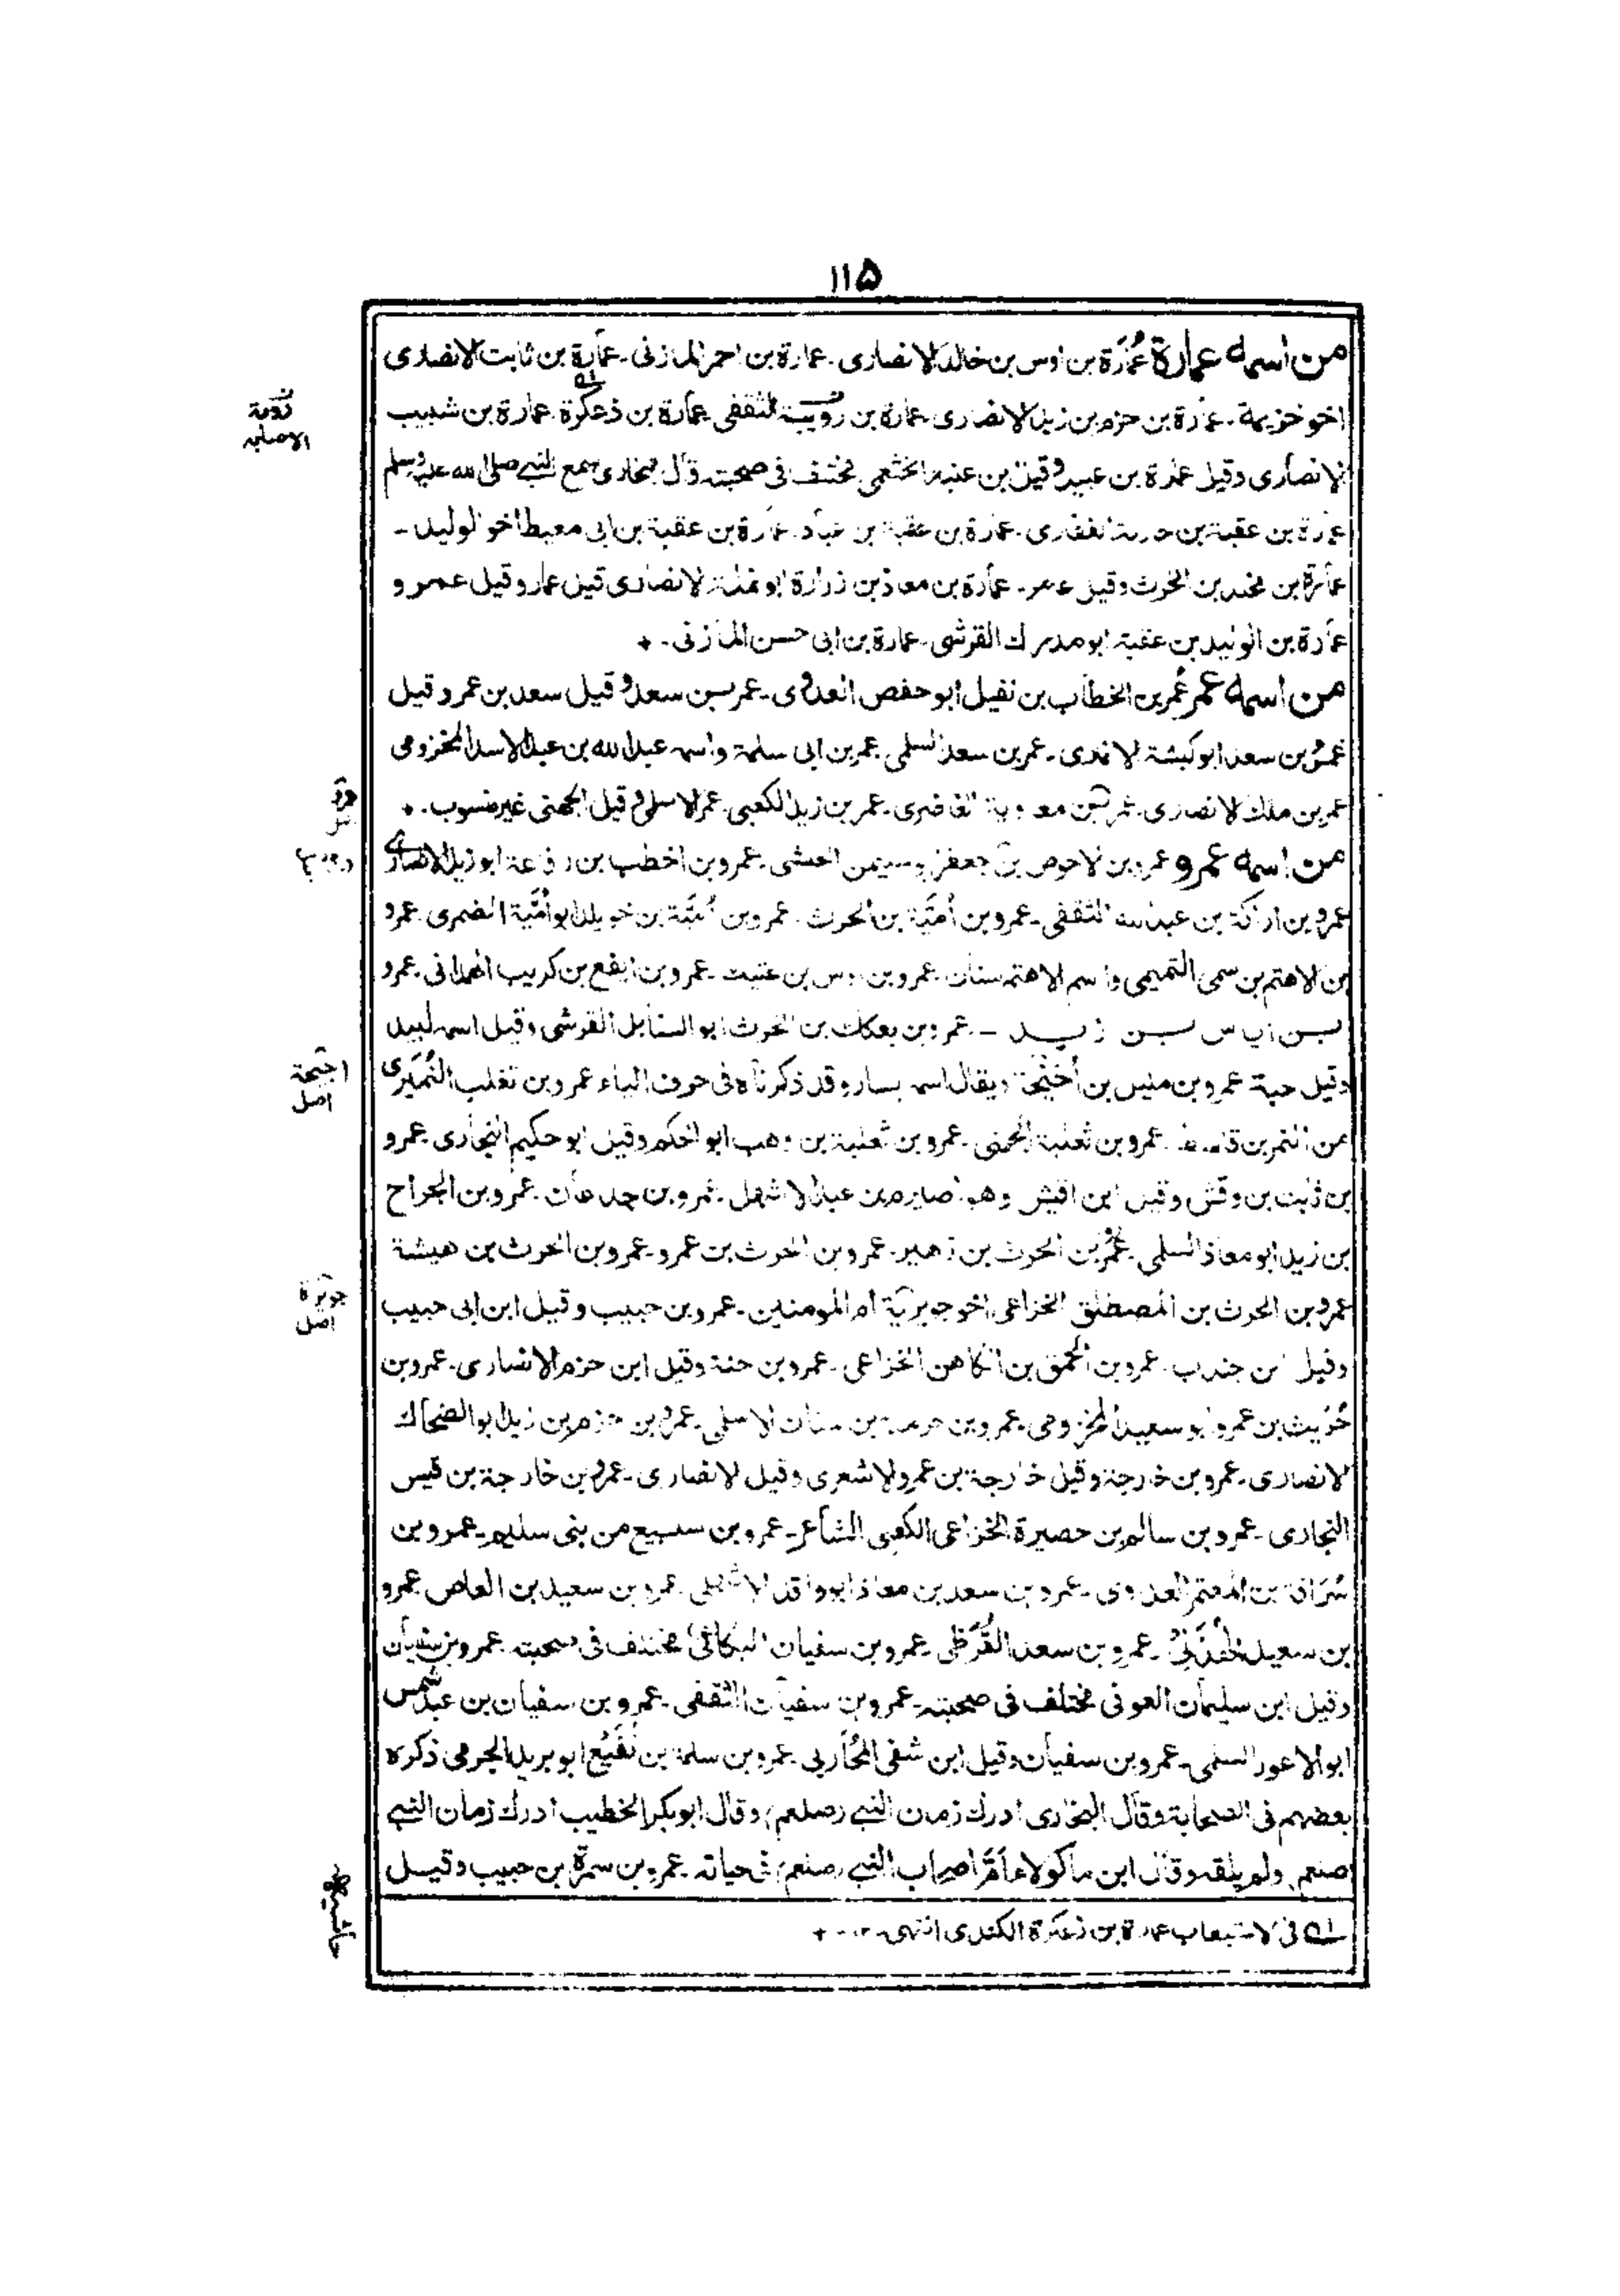 ۱۱۵
من اسمه عمارة عُمَارَة بن اوس بن خالد الانصاری۔ عمارة بن احمر المازنی۔ عمارة بن ثابت الانصاری
اخو خزیمة۔ عمارة بن حزم بن زید الانصاری۔ عمارة بن رُوَیبة الثقفی۔ عمارة بن زعکرة۔ عمارة بن شبیب
الانصاری وقیل عمارة بن عبید وقیل بن عبید الخثعمی مختلف فی صحبته قال البخاری سمع النبی صلی الله علیه وسلم
عمارة بن عقبة بن حارثة الغفاری۔ عمارة بن عقبة بن عباد۔ عمارة بن عقبة بن ابی معیط اخو الولید۔
عمارة بن مخلد بن الحرث وقیل عامر۔ عمارة بن معاذ بن زرارة ابو نملة الانصاری قیل عمار وقیل عمرو
عمارة بن الولید بن عقبة ابو مدرك القرشی۔ عمارة بن ابی حسن المازنی۔ *
من اسمه عمر عُمر بن الخطاب بن نفیل ابو حفص العدوی۔ عمر بن سعد وقیل سعد بن عمرو وقیل
عمرو بن سعد ابو کبشة الانمری۔ عمر بن سعد السلمی۔ عمر بن ابی سلمة واسمه عبد الله بن عبد الاسد المخزومی
عمر بن ملك الانصاری۔ عمر بن معاویة الغاضری۔ عمر بن زید الکعبی۔ عمر الاسلمی وقیل الجهنی غیر منسوب۔ *
من اسمه عمرو عمرو بن الاحوص بن جعفر ابو سلیمن الجشمی۔ عمرو بن اخطب بن رفاعة ابو زید الانصاری
عمرو بن اراکة بن عبد الله الثقفی۔ عمرو بن اُمَیَّة بن الحرث۔ عمرو بن اُمَیَّة بن خویلد ابو اُمَیَّة الضمری۔ عمرو
بن الاهتم بن سمی التمیمی واسم الاهتم سنان۔ عمرو بن اوس بن عتیک۔ عمرو بن ایفع بن کریب الهمدانی۔ عمرو
بن ایاس بن زید۔ عمرو بن بعکك بن الحرث ابو السنابل القرشی وقیل اسمه لبید
وقیل حبة عمرو بن ملیس بن اُحَیْحَة ویقال اسمه یسار وقد ذکرناه فی حرف الیاء عمرو بن تغلب النُمَیْری
من النمر بن قاسط۔ عمرو بن ثعلبة الجهنی۔ عمرو بن ثعلبة بن وهب ابو الحکم وقیل ابو حکیم النجاری۔ عمرو
بن ثابت بن وقش وقیل ابن اقیش وهو اصیرم بن عبد الاشهل۔ عمرو بن جدعان۔ عمرو بن الجراح
بن زید ابو معاذ السلمی۔ عمرو بن الحرث بن زهیر۔ عمرو بن الحرث بن عمرو۔ عمرو بن الحرث بن هیشة
عمرو بن الحرث بن المصطلق الخزاعی اخو جویریة ام المومنین۔ عمرو بن حبیب وقیل ابن ابی حبیب
وقیل ابن جندب۔ عمرو بن الحمق بن الکاهن الخزاعی۔ عمرو بن حنة وقیل ابن حزم الانصاری۔ عمرو بن
حُرَیث بن عمرو ابو سعید المخزومی۔ عمرو بن حرملة بن سنان الاسلمی۔ عمرو بن حزم بن زید ابو الضحاك
الانصاری۔ عمرو بن خارجة وقیل خارجة بن عمرو الاشعری وقیل الانصاری۔ عمرو بن خارجة بن قیس
النجاری۔ عمرو بن سالم بن حصیرة الخزاعی الکعبی الشاعر۔ عمرو بن سبیع من بنی سلیم۔ عمرو بن
سُرَاقة بن المعتمر العدوی۔ عمرو بن سعد بن معاذ ابو واقد الاشهلی۔ عمرو بن سعید بن العاص۔ عمرو
بن سعید الهُذَلِیُّ۔ عمرو بن سعد القُرَظی۔ عمرو بن سفیان البکائی مختلف فی صحبته۔ عمرو بن سفیان
وقیل ابن سلیمان العوفی مختلف فی صحبته۔ عمرو بن سفیان الثقفی۔ عمرو بن سفیان بن عبد شمس
ابو الاعور السلمی۔ عمرو بن سفیان وقیل ابن شفی المُحَاربی۔ عمرو بن سلمة بن نُفَیْع ابو برید الجرمی ذکره
بعضهم فی الصحابة وقال البخاری ادرك زمان النبی (صلعم) وقال ابو بکر الخطیب ادرك زمان النبی
صلعم ولم یلقه وقال ابن ماکولا عامة اصحاب النبی (صلعم) فی حیاته۔ عمرو بن سمرة بن حبیب وقیل
له فی الاستیعاب عمارة بن زعکرة الکندی انتهی۔ ۱۲۔ *
الاصابه
اُحیحة
اصل
جویرة
اصل
حاشیه